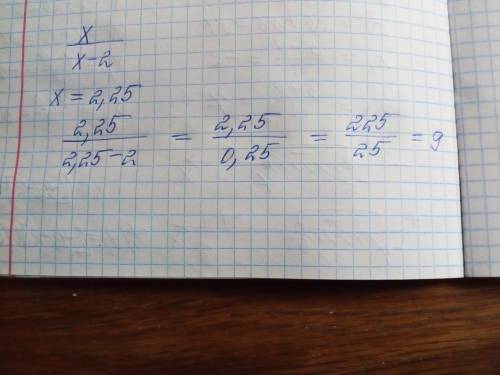 x
x-2
x = 2,25
2,25 / 2,25-2 = 2,25 / 0,25 = 225 / 25 = 9